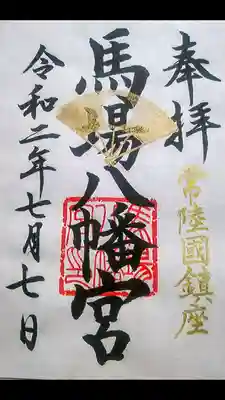 奉拝
常陸國鎮座
馬場八幡宮
令和二年七月七日